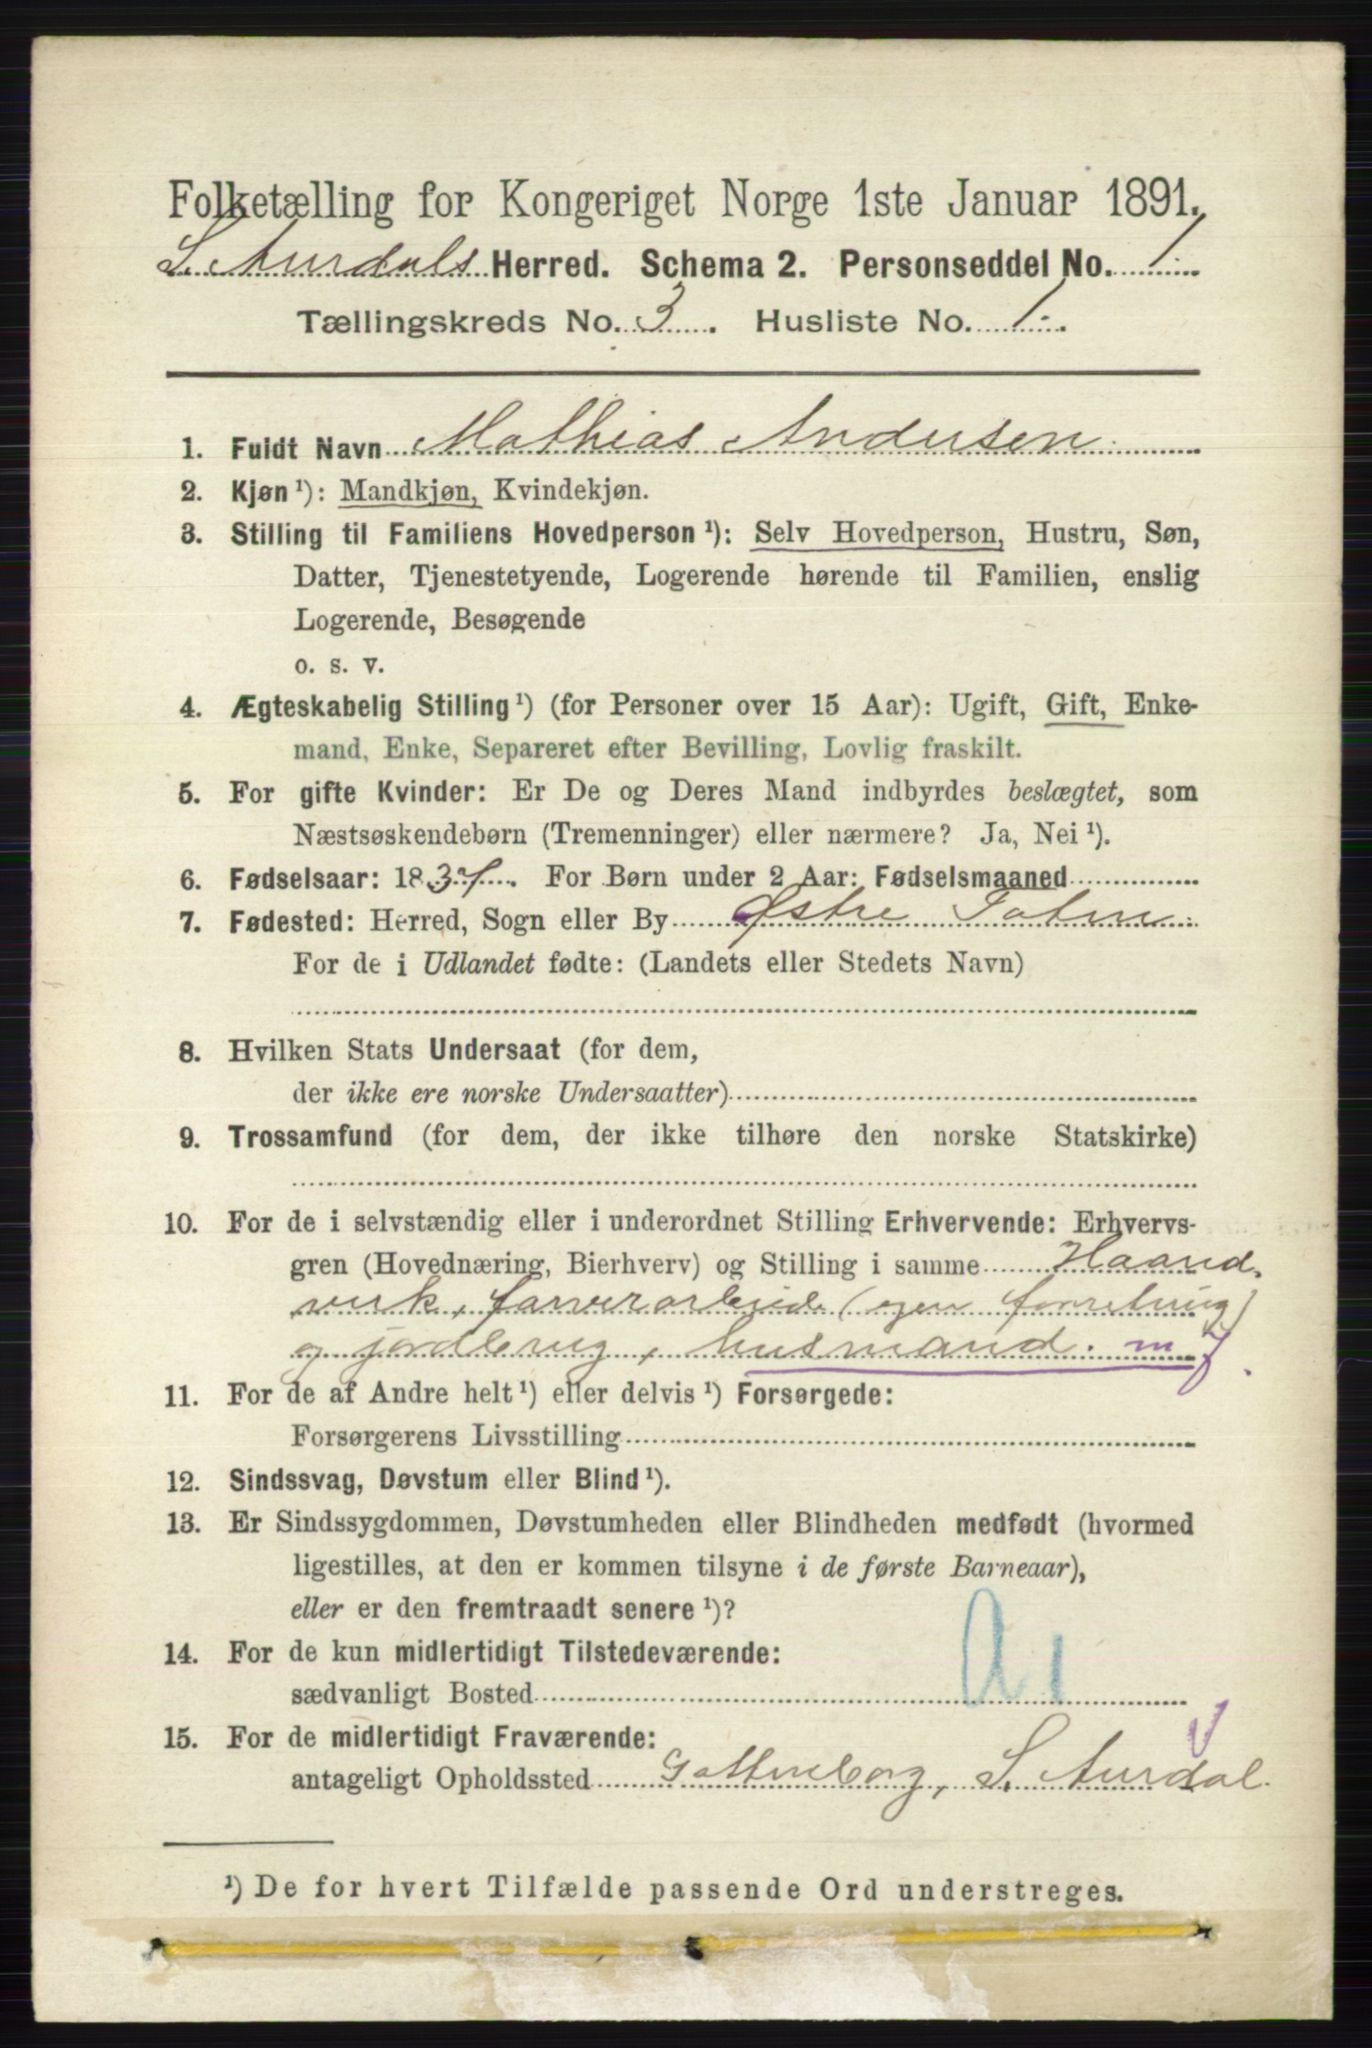 Folketælling for Kongeriget Norge 1ste Januar 1891.
S. Aurdals Herred. Schema 2. Personseddel No. 1.
Tællingskreds No. 3. Husliste No. 1.
1. Fuldt Navn Mathias Andersen.
2. Kjøn ¹): Mandkjøn, Kvindekjøn.
3. Stilling til Familiens Hovedperson ¹): Selv Hovedperson, Hustru, Søn,
Datter, Tjenestetyende, Logerende hørende til Familien, enslig
Logerende, Besøgende
o. s. v.
4. Ægteskabelig Stilling ¹) (for Personer over 15 Aar): Ugift, Gift, Enke-
mand, Enke, Separeret efter Bevilling, Lovlig fraskilt.
5. For gifte Kvinder: Er De og Deres Mand indbyrdes beslægtet, som
Næstsøskendebørn (Tremenninger) eller nærmere? Ja, Nei ¹).
6. Fødselsaar: 1837. For Børn under 2 Aar: Fødselsmaaned
7. Fødested: Herred, Sogn eller By Østre Toten
For de i Udlandet fødte: (Landets eller Stedets Navn)
8. Hvilken Stats Undersaat (for dem,
der ikke ere norske Undersaatter)
9. Trossamfund (for dem, der ikke tilhøre den norske Statskirke)
10. For de i selvstændig eller i underordnet Stilling Erhvervende: Erhvervs-
gren (Hovednæring, Bierhverv) og Stilling i samme Haand-
verk, farverarbeide (egen forretning)
og jordbrug, husmand. m J.
11. For de af Andre helt ¹) eller delvis ¹) Forsørgede:
Forsørgerens Livsstilling
12. Sindssvag, Døvstum eller Blind ¹).
13. Er Sindssygdommen, Døvstumheden eller Blindheden medfødt (hvormed
ligestilles, at den er kommen tilsyne i de første Barneaar),
eller er den fremtraadt senere ¹)?
14. For de kun midlertidigt Tilstedeværende:
sædvanligt Bosted a 1
15. For de midlertidigt Fraværende:
antageligt Opholdssted Gottenborg, S. Aurdal.
¹) De for hvert Tilfælde passende Ord understreges.